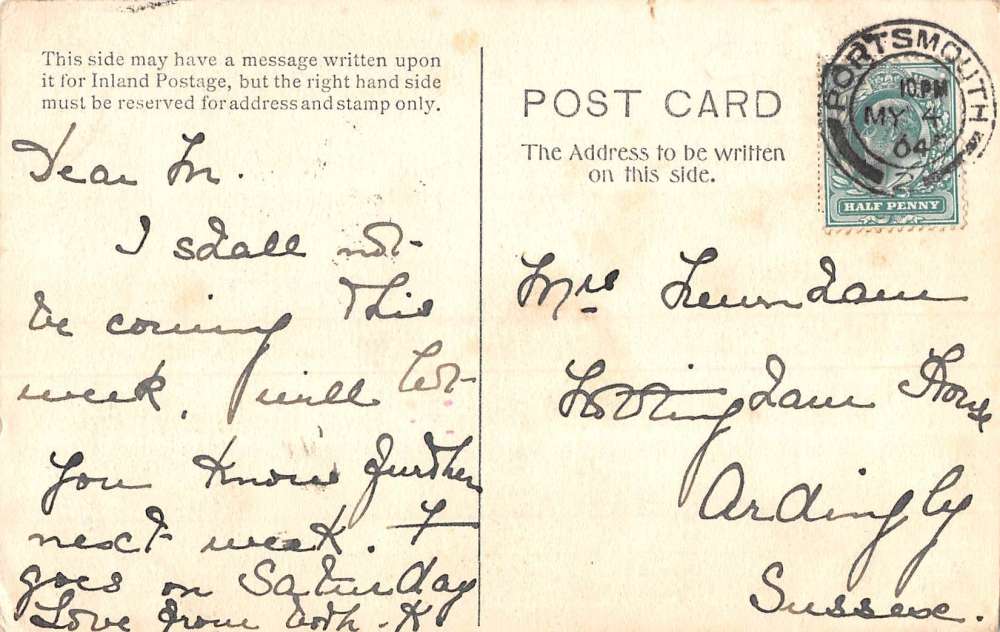 This side may have a message written upon
it for Inland Postage, but the right hand side
must be reserved for address and stamp only.
Dear M.
I shall not
be coming this
week, will let
you know further
next week. F
goes on Saturday
Love from both. K.
POST CARD
The Address to be written
on this side.
PORTSMOUTH
10.PM
MY 4
04
HALF PENNY
Mrs
Nottingham House
Ardingly
Sussex.